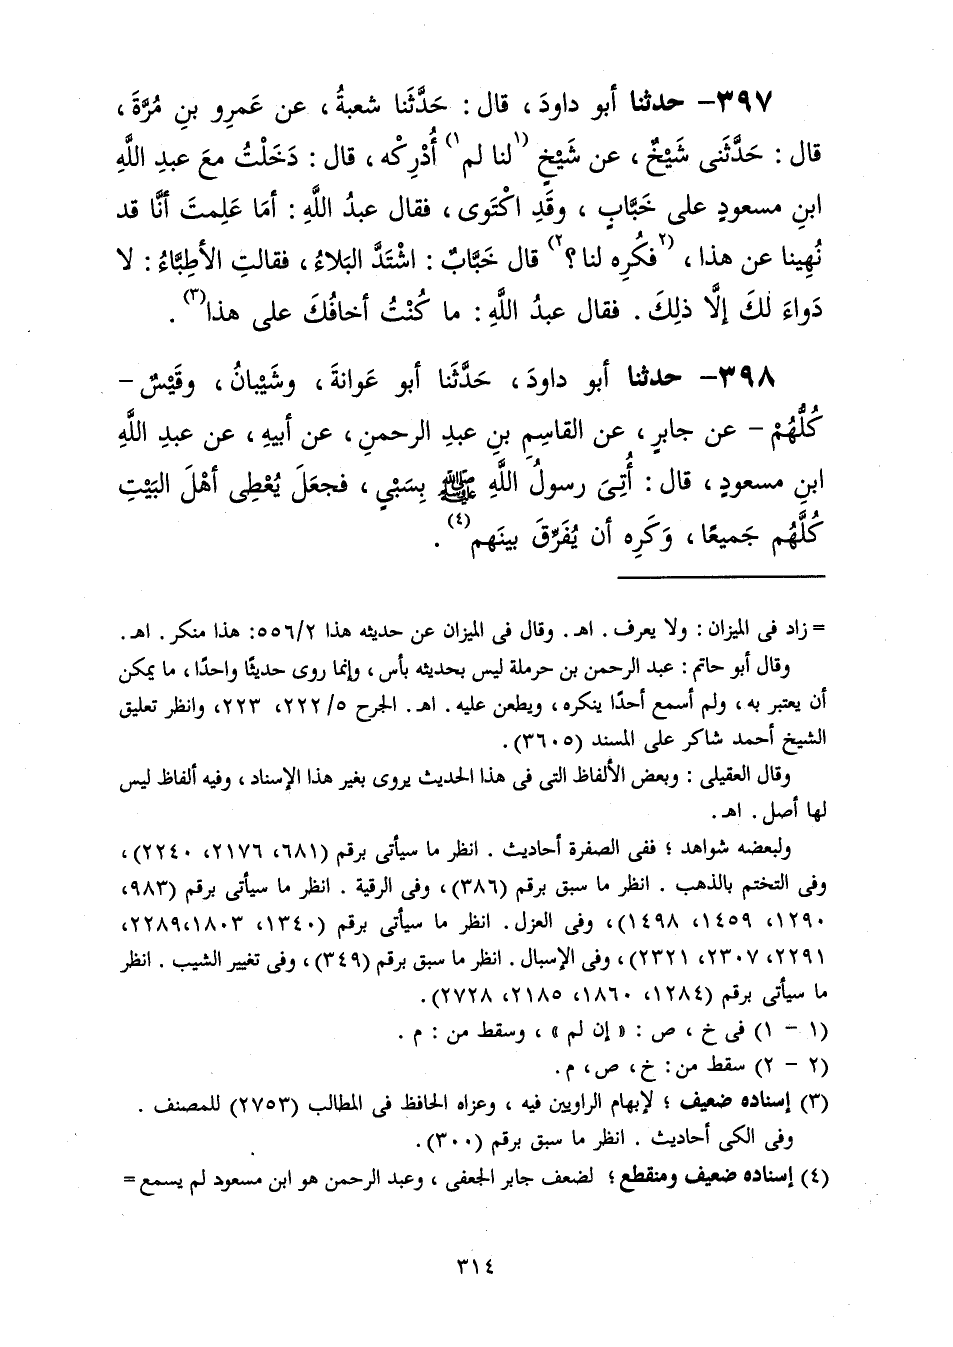 ٣٩٧- حدثنا أبو داودَ ، قال : حَدَّثَنا شعبةُ ، عن عَمرِو بنِ مُرَّةَ ،
قال : حَدَّثَنى شَيْخٌ ، عن شَيْخٍ (١لنا لم١) أُدْرِكْه ، قال : دَخَلْتُ معَ عبدِ اللَّهِ
ابنِ مسعودٍ على خَبَّابٍ ، وقَدِ اكْتَوى ، فقال عبدُ اللَّهِ : أمَا عَلِمتَ أنَّا قد
نُهِينا عن هذا ، (٢فكُرِه لنا ؟٢) قال خَبَّابٌ : اشْتَدَّ البَلاءُ ، فقالتِ الأطِبَّاءُ : لا
دَواءَ لكَ إلَّا ذلِكَ . فقال عبدُ اللَّهِ : ما كُنْتُ أخافُكَ على هذا(٣) .
٣٩٨- حدثنا أبو داودَ ، حَدَّثَنا أبو عَوانةَ ، وشَيْبانُ ، وقَيْسٌ -
كُلُّهُمْ - عن جابرٍ ، عن القاسِمِ بنِ عبدِ الرحمنِ ، عن أبيهِ ، عن عبدِ اللَّهِ
ابنِ مسعودٍ ، قال : أُتِىَ رسولُ اللَّهِ ﷺ بِسَبْيٍ ، فجعَلَ يُعْطِى أهْلَ البَيْتِ
كُلَّهُم جَميعًا ، وَكَرِه أن يُفَرِّقَ بينَهم(٤) .
= زاد فى الميزان : ولا يعرف . اهـ . وقال فى الميزان عن حديثه هذا ٥٥٦/٢: هذا منكر . اهـ .
وقال أبو حاتم : عبد الرحمن بن حرملة ليس بحديثه بأس ، وإنما روى حديثًا واحدًا ، ما يمكن
أن يعتبر به ، ولم أسمع أحدًا ينكره ، ويطعن عليه . اهـ . الجرح ٥/ ٢٢٢، ٢٢٣، وانظر تعليق
الشيخ أحمد شاكر على المسند (٣٦٠٥).
وقال العقيلى : وبعض الألفاظ التى فى هذا الحديث يروى بغير هذا الإسناد ، وفيه ألفاظ ليس
لها أصل . اهـ .
ولبعضه شواهد ؛ ففى الصفرة أحاديث . انظر ما سيأتى برقم (٦٨١، ٢١٧٦، ٢٢٤٠) ،
وفى التختم بالذهب . انظر ما سبق برقم (٣٨٦) ، وفى الرقية . انظر ما سيأتى برقم (٩٨٣،
١٢٩٠، ١٤٥٩، ١٤٩٨) ، وفى العزل . انظر ما سيأتى برقم (١٣٤٠، ١٨٠٣، ٢٢٨٩،
٢٢٩١، ٢٣٠٧، ٢٣٢١) ، وفى الإسبال . انظر ما سبق برقم (٣٤٩) ، وفى تغيير الشيب . انظر
ما سيأتى برقم (١٢٨٤، ١٨٦٠، ٢١٨٥، ٢٧٢٨).
(١ - ١) فى خ ، ص : « إن لم » ، وسقط من : م .
(٢ - ٢) سقط من : خ ، ص ، م .
(٣) إسناده ضعيف ؛ لإبهام الراويين فيه ، وعزاه الحافظ فى المطالب (٢٧٥٣) للمصنف .
وفى الكى أحاديث . انظر ما سبق برقم (٣٠٠).
(٤) إسناده ضعيف ومنقطع ؛ لضعف جابر الجعفى ، وعبد الرحمن هو ابن مسعود لم يسمع =
٣١٤